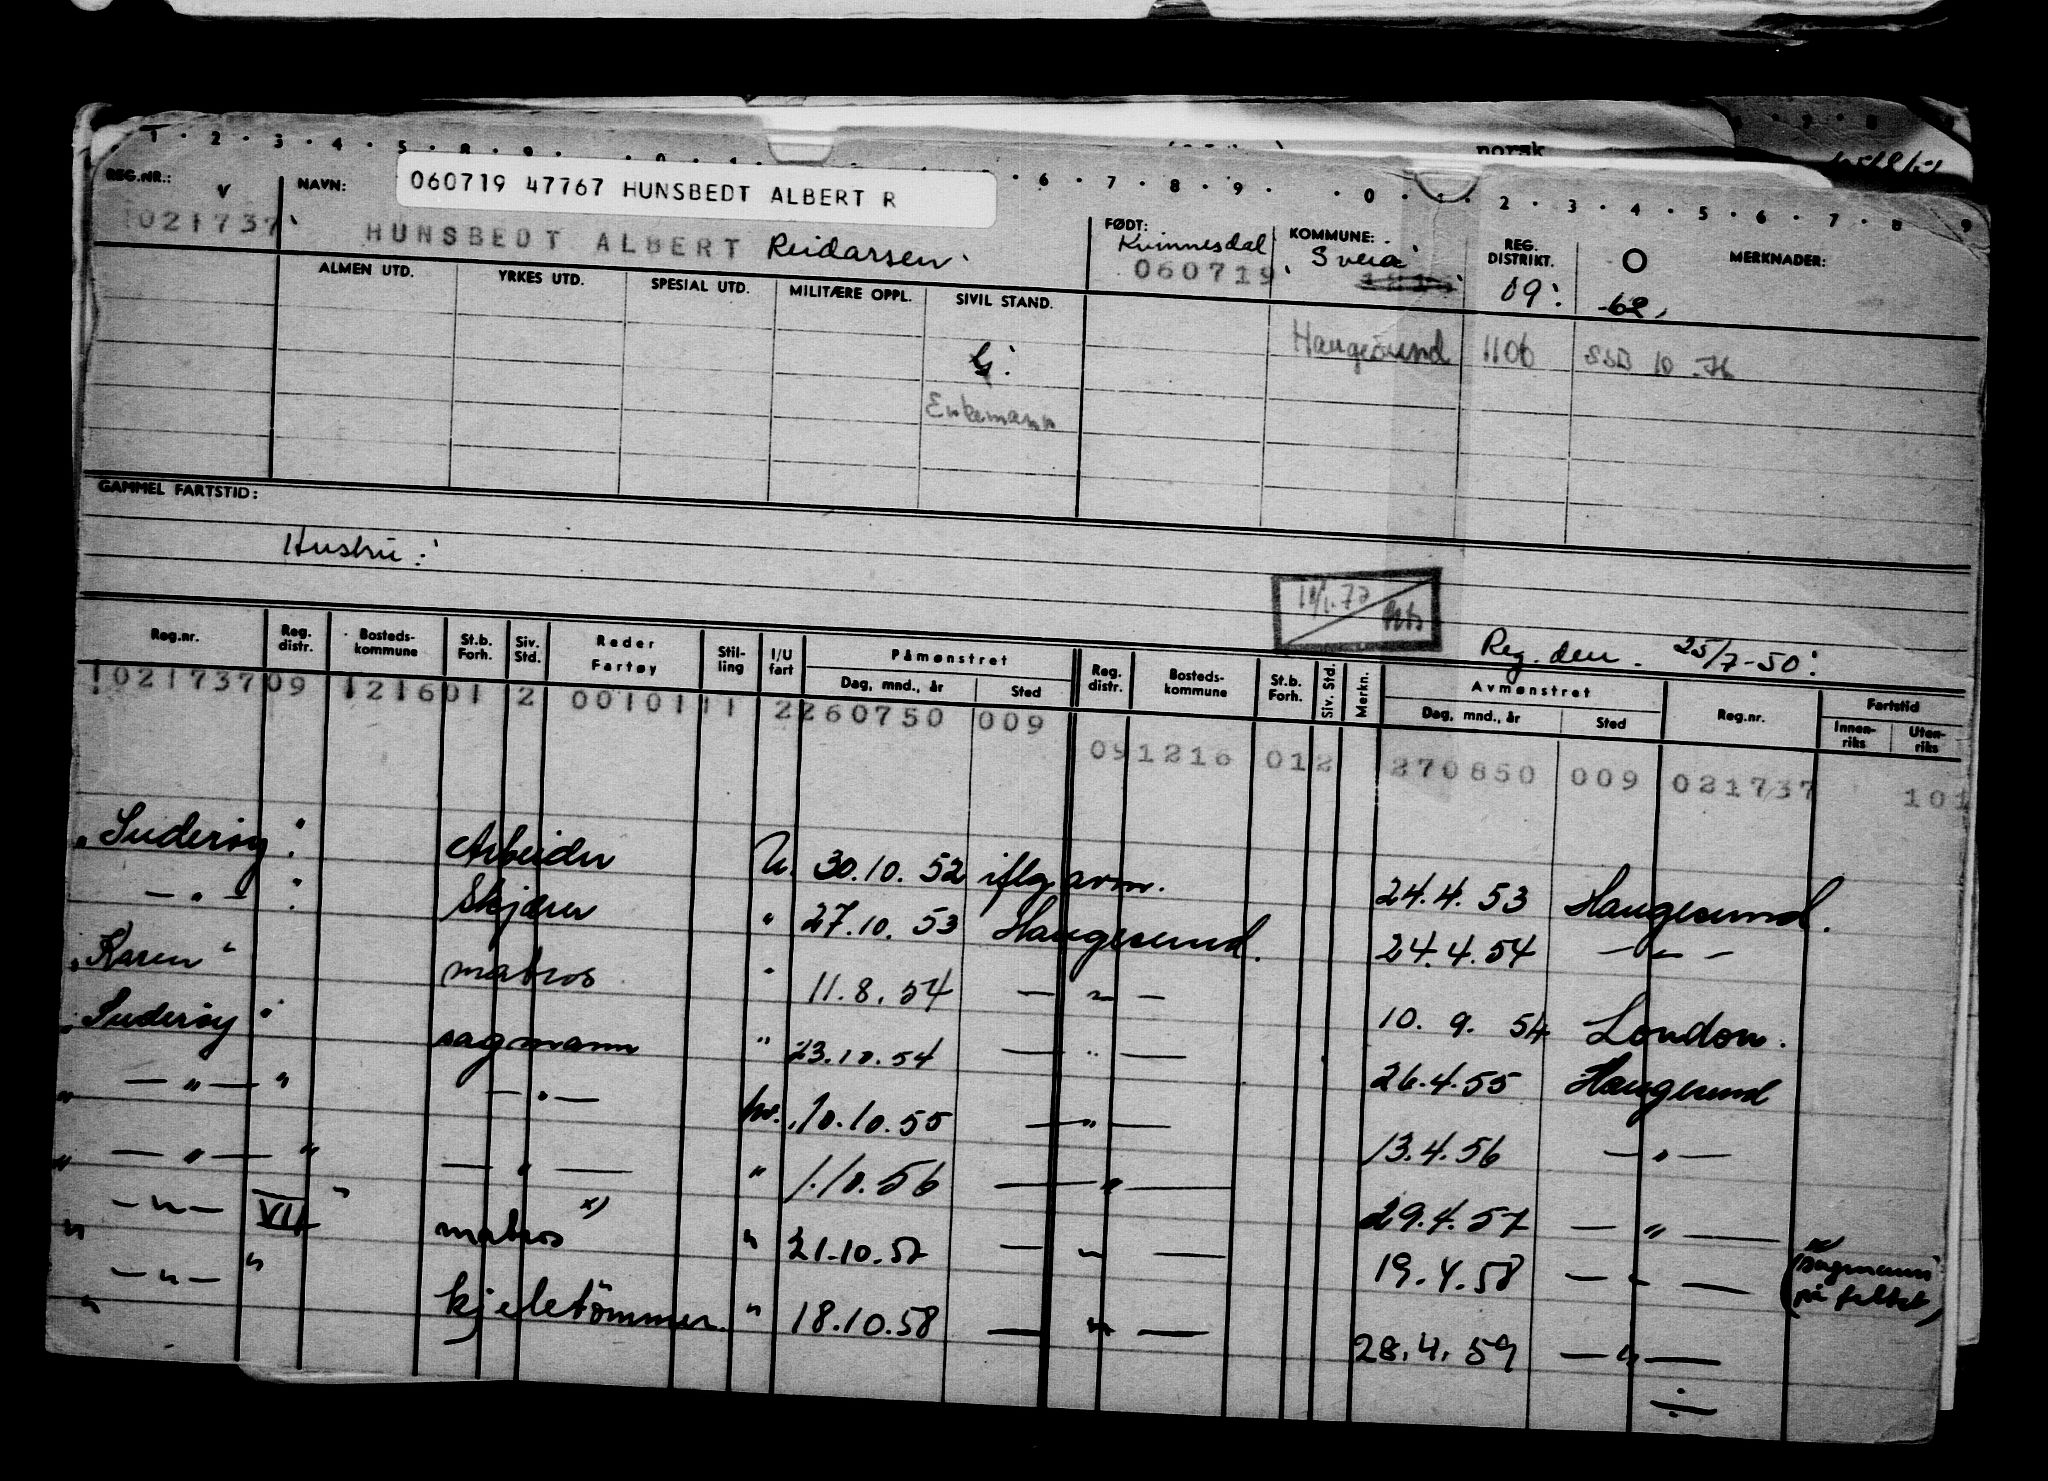 norsk
1 · 2 · 3 · 4 · 5 8 9 0 1 6 · 7 · 8 · 9 · · 0 · 1 · 2 · 3 · 4 · 5 · 6 · 7 · 8 · 9
REG.NR.: V NAVN: 060719 47767 HUNSBEDT ALBERT R FØDT: KOMMUNE: REG. DISTRIKT. O MERKNADER:
021737 HUNSBEDT ALBERT Reidarsen Kvinnesdal 060719 Sveio 09 62
ALMEN UTD. YRKES UTD. SPESIAL UTD. MILITÆRE OPPL. SIVIL STAND.
G. Haugesund 1106 SSB 10.76
Enkemann
GAMMEL FARTSTID:
Hustru:
11/1.77
Reg. den. 25/7-50
Reg.nr. Reg. distr. Bosteds- kommune St.b. Forh. Siv. Std. Reder Fartøy Stil- ling I/U fart Påmønstret Reg. distr. Bosteds- kommune St.b. Forh. Siv. Std. Merkn. Avmønstret Reg.nr. Fartstid
Dag, mnd., år Sted Dag, mnd., år Sted Innen- riks Uten- riks
021737 09 1216 01 2 00101 11 2 260750 009
09 1216 01 2 270850 009 021737 101
"Suderøy" Arbeider U. 30.10.52 iflg avm. 24.4.53 Haugesund.
— " — Skjærer " 27.10.53 Haugesund. 24.4.54 — " —
"Karen" matros " 11.8.54 — " — 10.9.54 London.
"Suderøy" sagmann " 23.10.54 — " — 26.4.55 Haugesund
" — " — " — " — hv. 10.10.55 — " — 13.4.56 — " —
" — " — " — " — " 1.10.56 — " — 29.4.57 — " —
" — " — VII " matros x) " 21.10.57 — " — 19.4.58 — " — x) (sagmann på feltet)
" — " — " kjeletömmer. " 18.10.58 — " — 28.4.59 — " —
÷